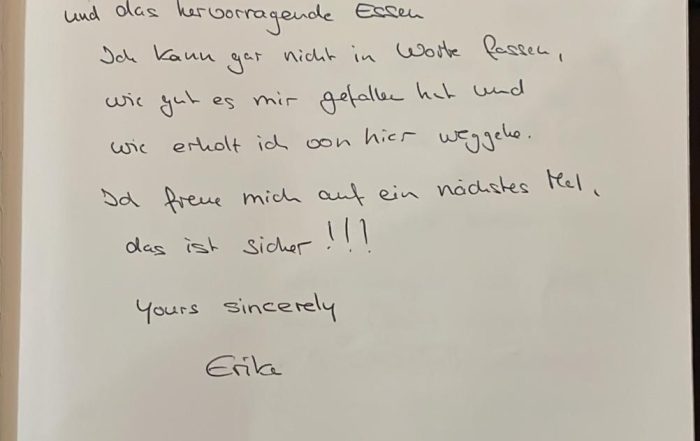 und das hervorragende Essen
Ich kann gar nicht in Worte fassen,
wie gut es mir gefallen hat und
wie erholt ich von hier weggehe.
Ich freue mich auf ein nächstes Mal,
das ist sicher!!!
Yours sincerely
Erika